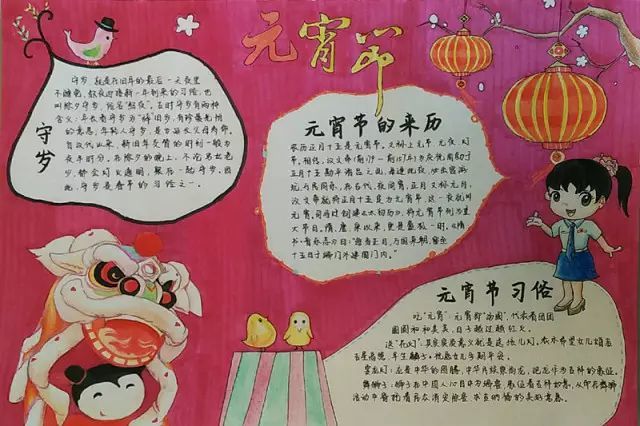 元宵节
守岁
守岁，就是在旧年的最后一天夜里
不睡觉，熬夜迎接新一年到来的习俗，也
叫除夕守岁，俗名"熬夜"。古时守岁有两种
含义：年长者守岁为"辞旧岁"，有珍爱光阴
的意思；年轻人守岁，是为延长父母寿命。
自汉代以来，新旧年交替的时刻一般为
夜半时分。在除夕的晚上，不论男女老少，
都会灯火通明，聚在一起守岁。因
此，守岁是春节的习俗之一。
元宵节的来历
农历正月十五是元宵节，又称上元节、元夜、灯
节。相传，汉文帝（前179—前157年）为庆祝周勃于
正月十五勘平诸吕之乱，每逢此夜，必出宫游
玩，与民同乐，在古代，夜同宵，正月又称元月，
汉文帝就将正月十五定为元宵节，这一夜就叫
元宵。司马迁创建《太初历》，将元宵节列为重
大节日。隋、唐、宋以来，更是盛极一时。《隋
书·音乐志》曰："每当正月，万国来朝，留至
十五日于端门外建国门内，
元宵节习俗
吃"元宵"：元宵即"汤圆"，代表着团团
圆圆和和美美，日子越过越红火。
送"花灯"：其实质意义就是送孩儿灯，
舞狮子：狮子在中国人心目中为瑞兽，象征着吉祥如意，从而在舞狮
活动中寄托着民众消灾除害、求吉纳福的美好意愿。